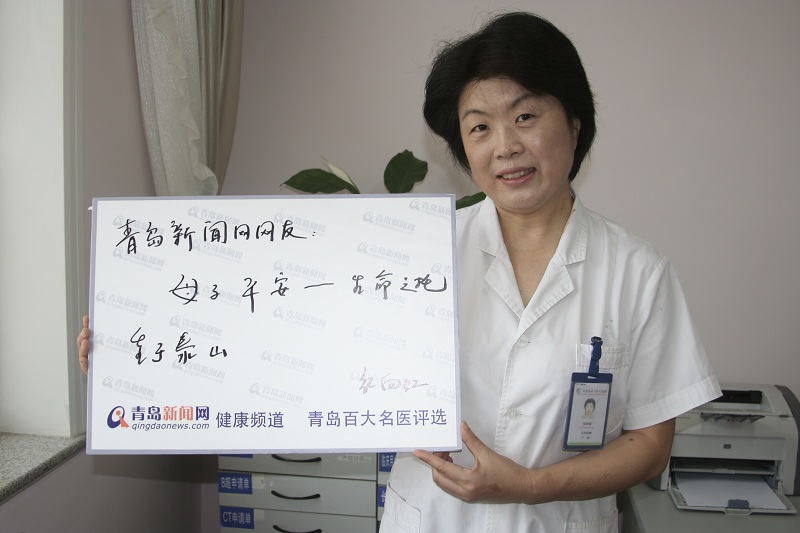 青岛新闻网网友：
母子平安——生命之托
重于泰山
青岛新闻网
qingdaonews.com
健康频道
青岛百大名医评选
B超申请单
CT申请单